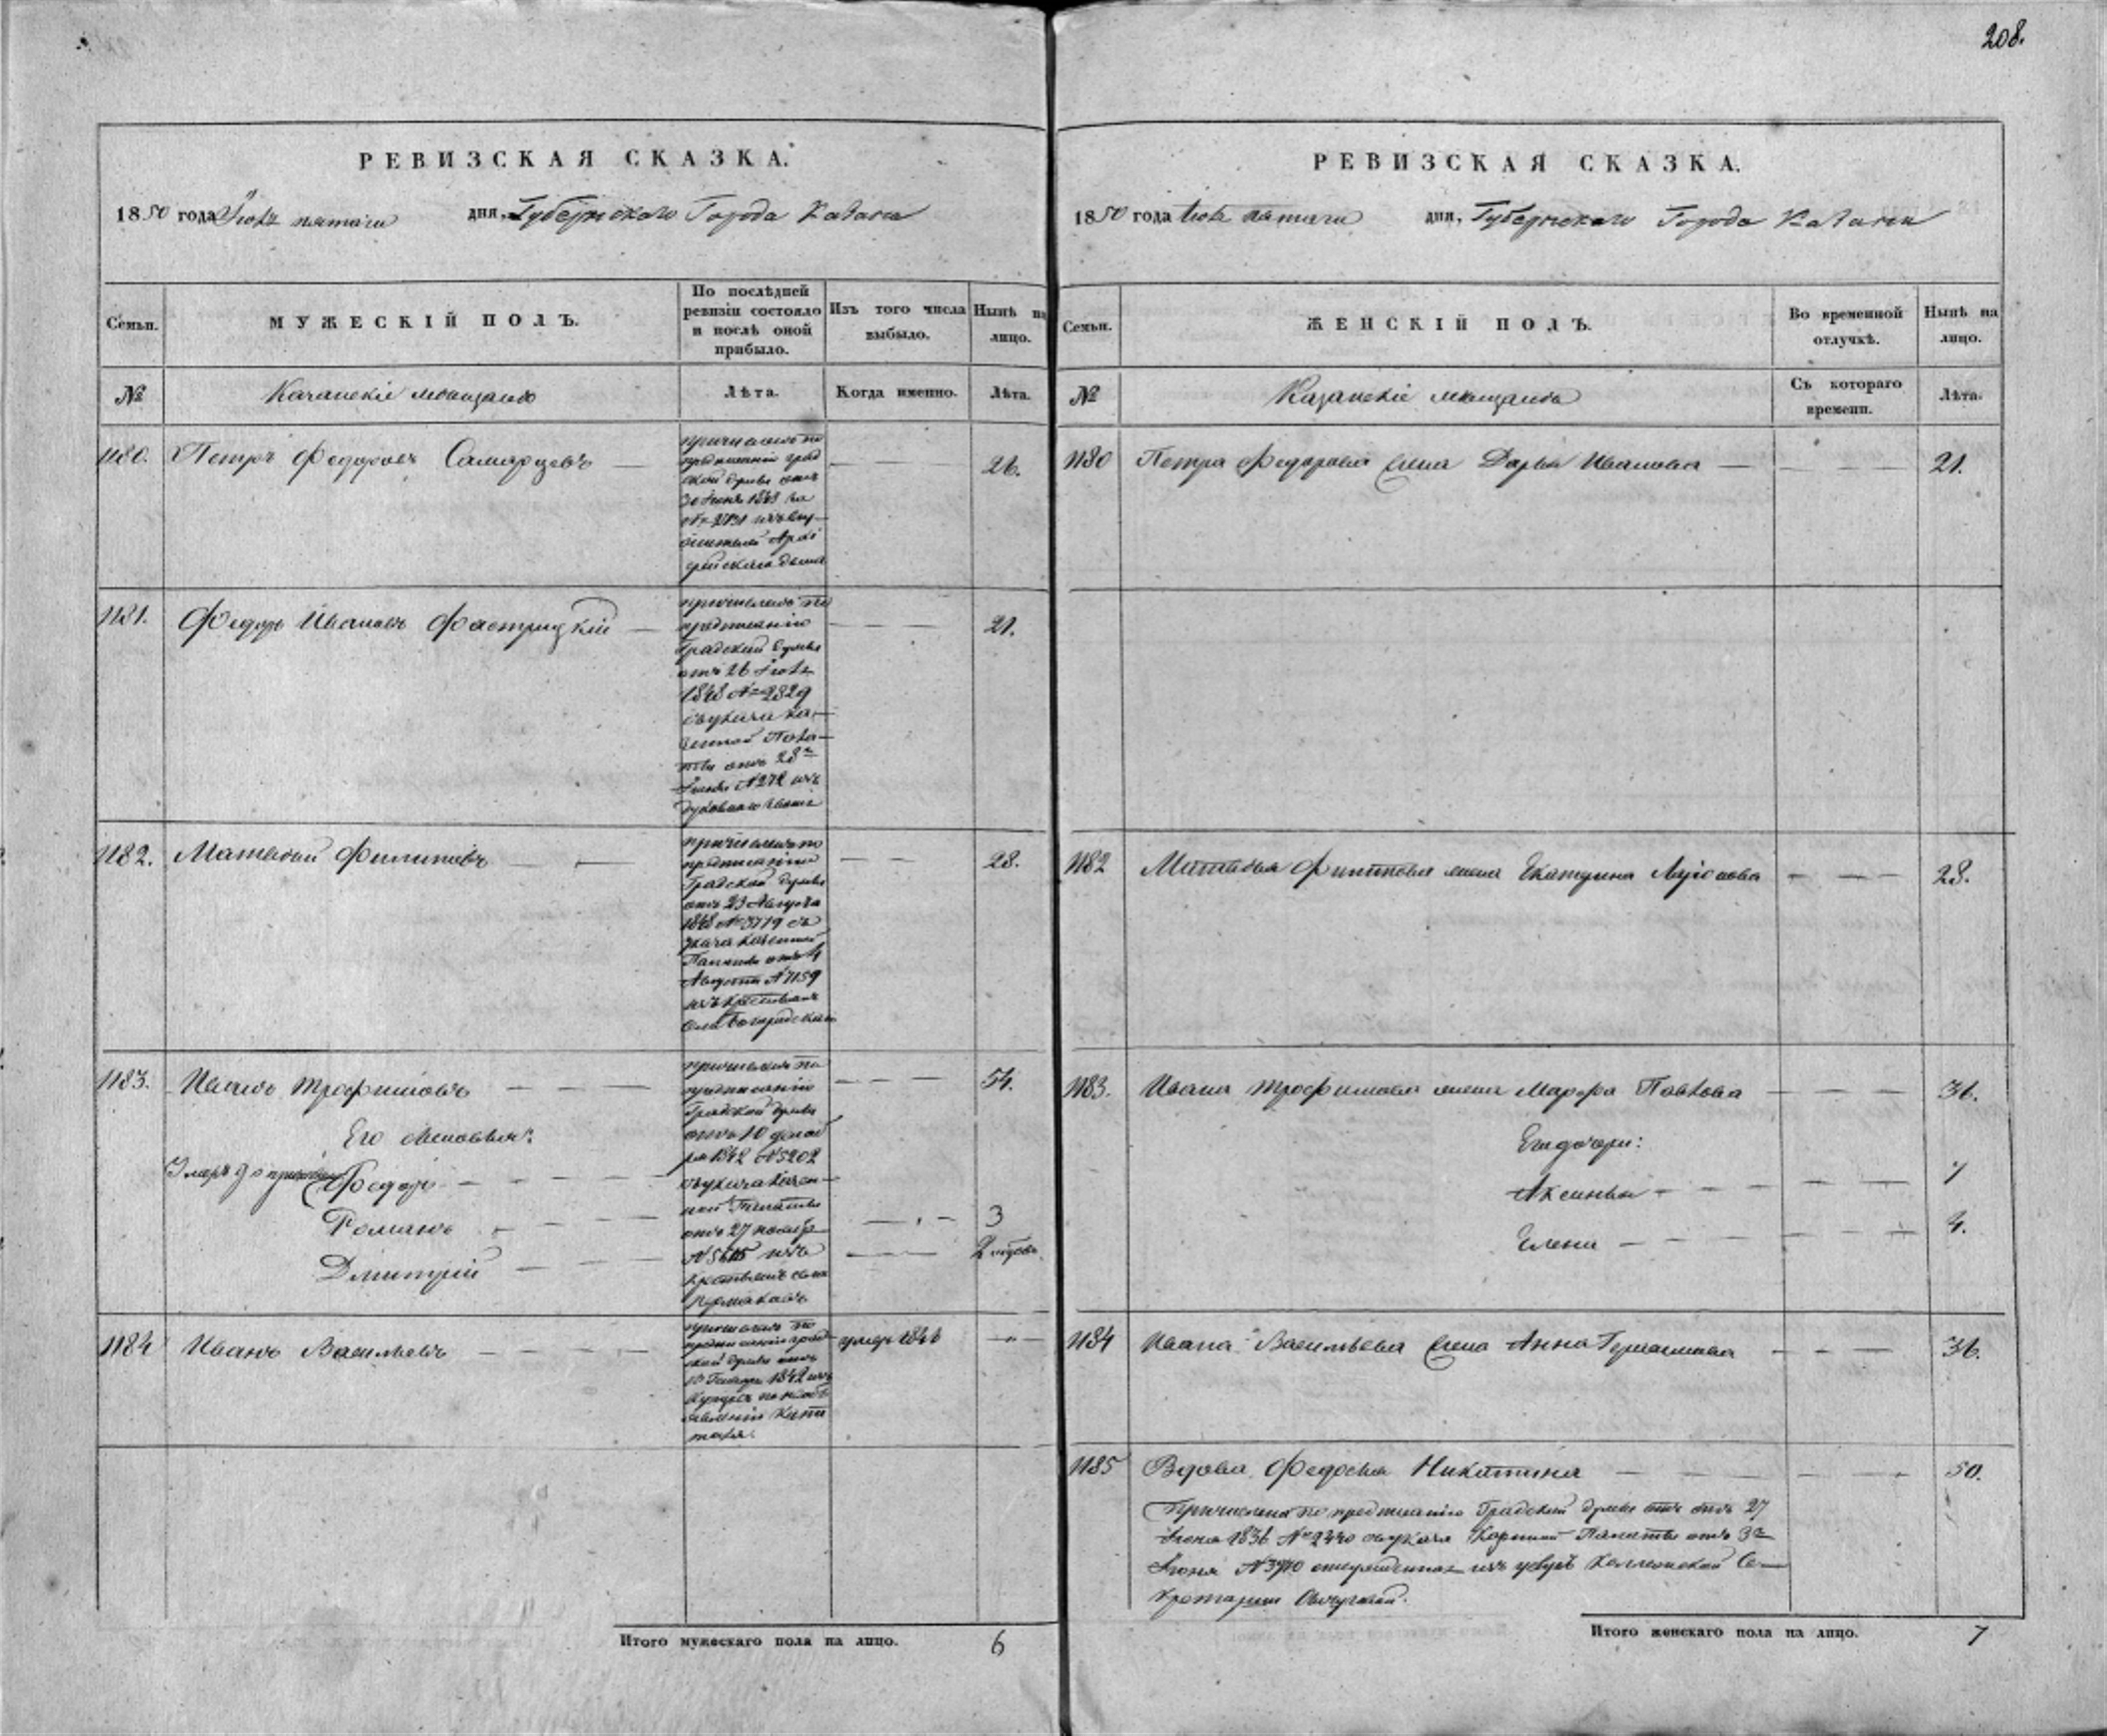 208.
РЕВИЗСКАЯ СКАЗКА.
1850 года Іюля пятаго дня, Губернскаго Города Казани
Семьи.
МУЖЕСКІЙ ПОЛЪ.
По послѣдней
ревизіи состояло
и послѣ оной
прибыло.
Изъ того числа
выбыло.
Нынѣ на
лицо.
№
Казанскіе мѣщане
Лѣта.
Когда именно.
Лѣта.
1180.
Петръ Федоровъ Самарцевъ
причисленъ по
предписанію град
ской думы отъ
30 Іюня 1848 за
26.
1181.
Федоръ Ивановъ
причисленъ по
предписанію
Градской думы
отъ 26 Іюля
1848 № 2829
съ указа ка-
зенной Пала-
ты отъ 23
изъ
духовнаго званія
21.
1182.
Матвей Филиповъ
причисленъ по
предписанію
Градской думы
отъ 23 Августа
1848 № 3719 съ
указа казенной
Палаты отъ 4
Августа № 7159
изъ крестьянъ
села
28.
1183.
Иванъ Трофимовъ
Его сыновья:
Умеръ до
Федоръ
Романъ
Дмитрій
причисленъ по
предписанію
Градской думы
отъ 10 декаб
ря 1842 № 5202
съ указа казен-
ной Палаты
отъ 27 ноября
изъ
крестьянъ села
54.
3
1184
Иванъ Васильевъ
причисленъ по
предписанію град
ской думы отъ
1842 изъ
купцовъ по необъ
явленію капи
тала.
умеръ
Итого мужескаго пола на лицо.
6
РЕВИЗСКАЯ СКАЗКА.
1850 года Іюля пятаго дня, Губернскаго Города Казани
Семьи.
ЖЕНСКІЙ ПОЛЪ.
Во временной
отлучкѣ.
Нынѣ на
лицо.
№
Казанскіе мѣщане
Съ котораго
времени.
Лѣта.
1180
Петра Федорова жена Дарья Иванова
21.
1182
Матвея Филипова жена Екатерина
28.
1183.
Ивана Трофимова жена Марфа Павлова
36.
Его дочери:
Аксинья
7
Елена
4.
1184
Ивана Васильева жена Анна Герасимова
36.
1185
Вдова Федосья Никитина
50.
Причислена по предписанію Градской думы отъ 27
Іюня 1836 № 2440 съ указа Казенной Палаты отъ 3
Іюня изъ Коллежской Се-
кретарши
Итого женскаго пола на лицо.
7